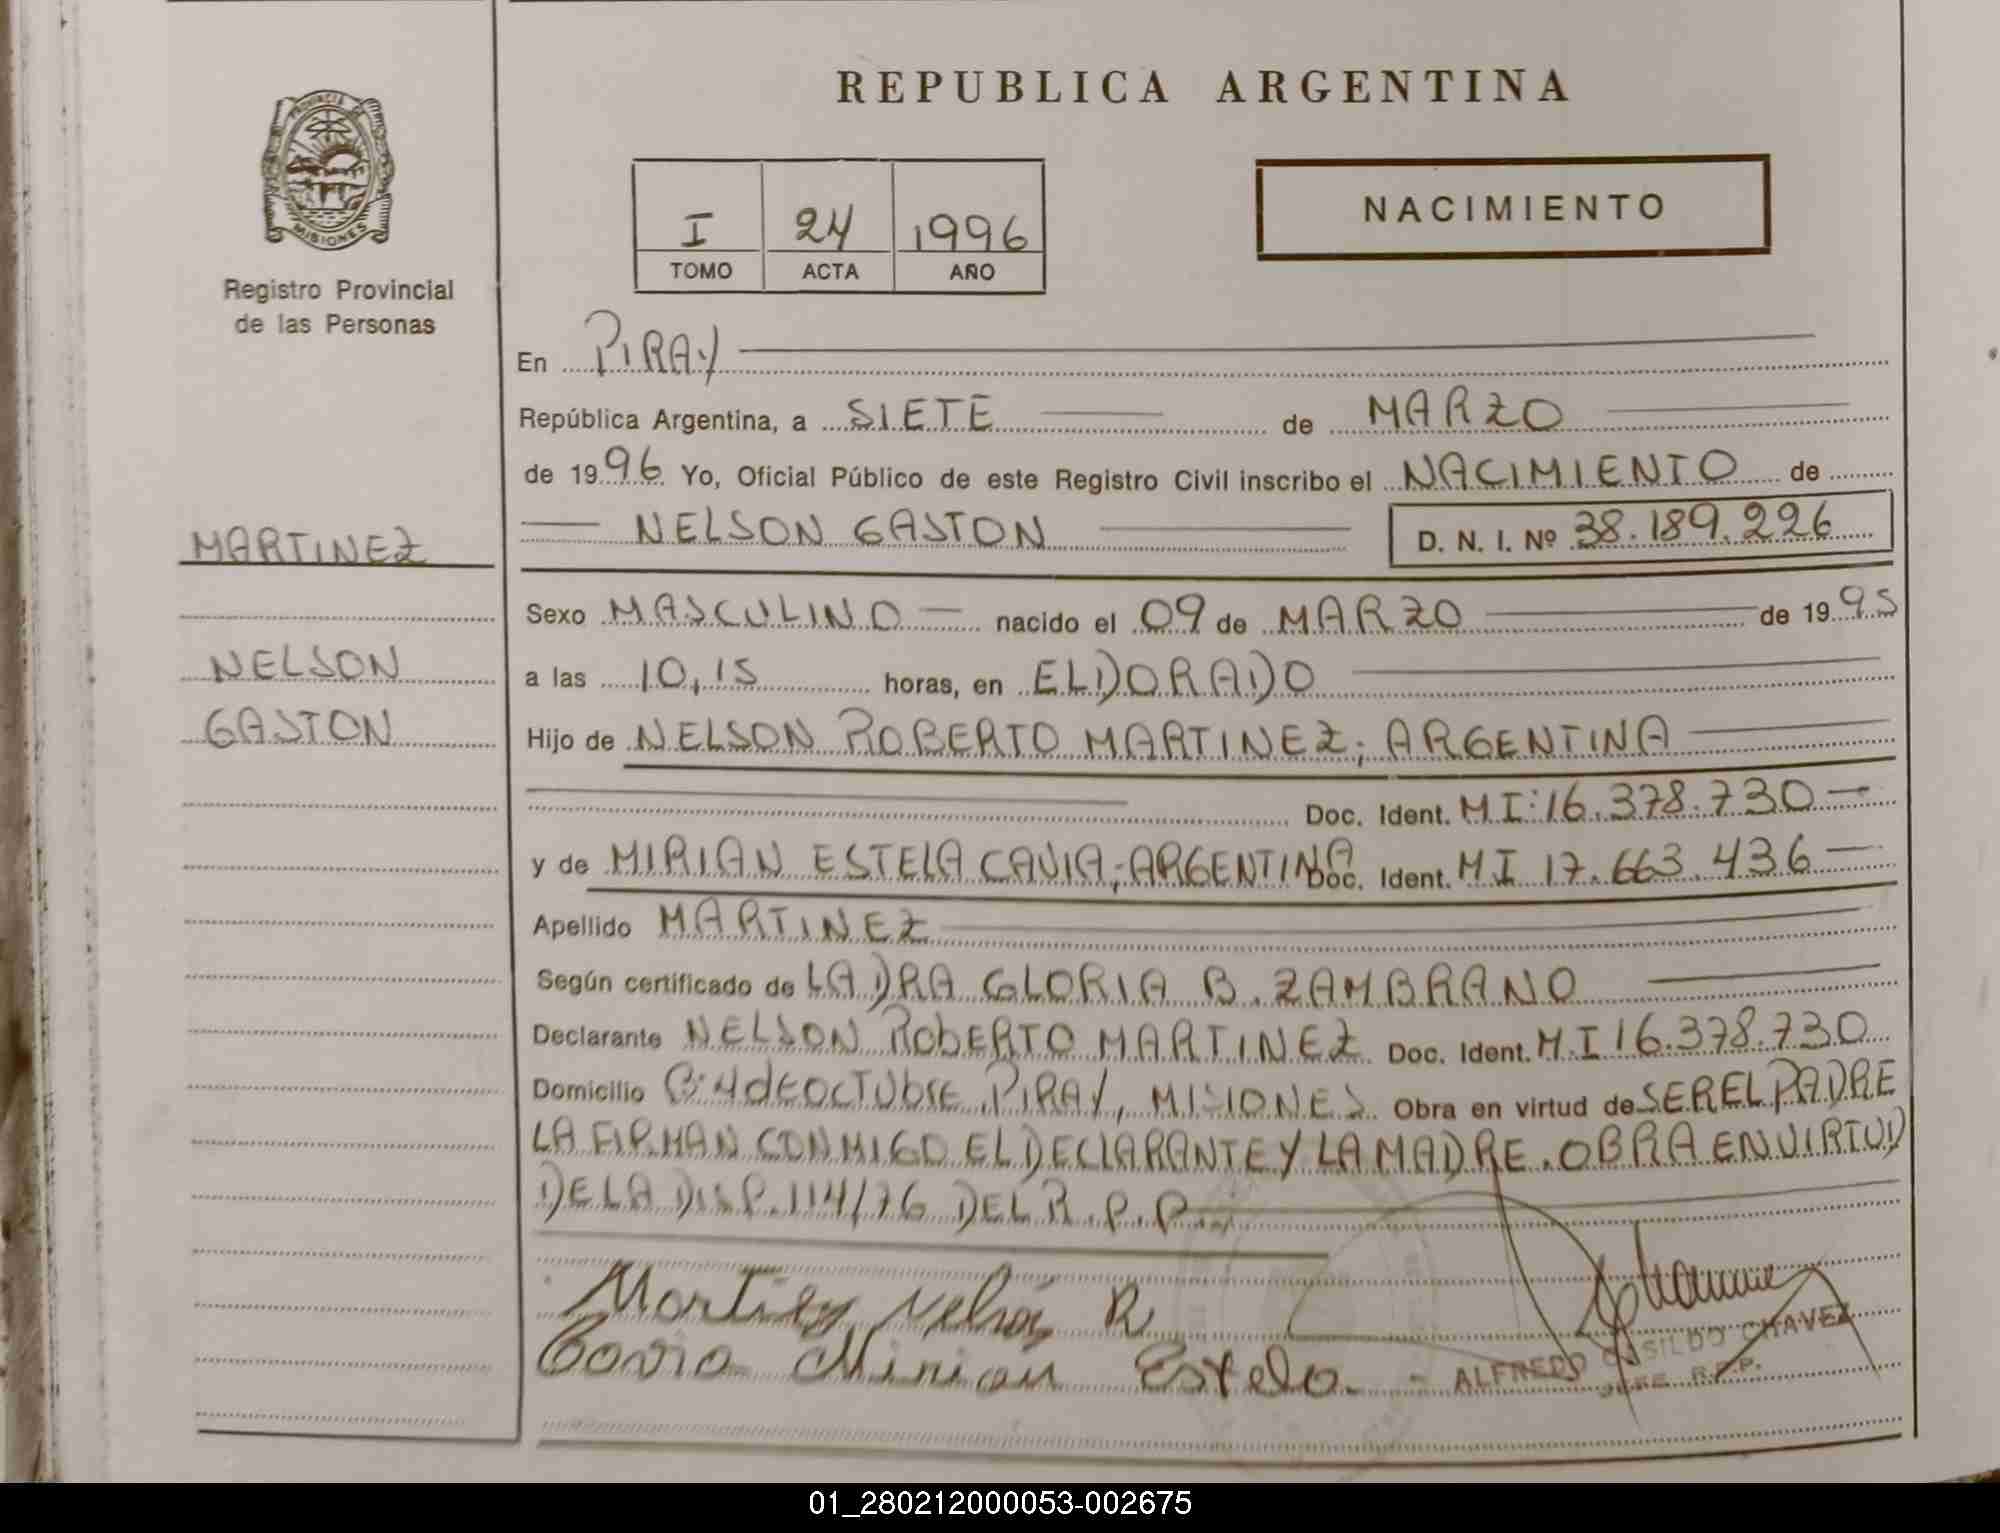 REPUBLICA ARGENTINA
PROVINCIA DE
MISIONES
Registro Provincial
de las Personas
I 24 1996
TOMO ACTA AÑO
NACIMIENTO
En PIRAY
República Argentina, a SIETE de MARZO
de 1996 Yo, Oficial Público de este Registro Civil inscribo el NACIMIENTO de
NELSON GASTON D. N. I. Nº 38.189.226
MARTINEZ
NELSON
GASTON
Sexo MASCULINO nacido el 09 de MARZO de 1995
a las 10,15 horas, en ELDORADO
Hijo de NELSON ROBERTO MARTINEZ; ARGENTINA
Doc. Ident. MI:16.378.730
y de MIRIAN ESTELA CAVIA;-ARGENTINA Doc. Ident. MI 17.663.436
Apellido MARTINEZ
Según certificado de LA DRA GLORIA B. ZAMBRANO
Declarante NELSON ROBERTO MARTINEZ Doc. Ident. M.I 16.378.730
Domicilio Bº 4 DE OCTUBRE, PIRAY, MISIONES Obra en virtud de SER EL PADRE
LA FIRMAN CONMIGO EL DECLARANTE Y LA MADRE. OBRA EN VIRTUD
DE LA DISP. 114/76 DEL R.P.P.
Martinez Nelson R
Cavia Mirian Estela.
ALFREDO CASILDO CHAVEZ
JEFE R.P.P.
01_280212000053-002675